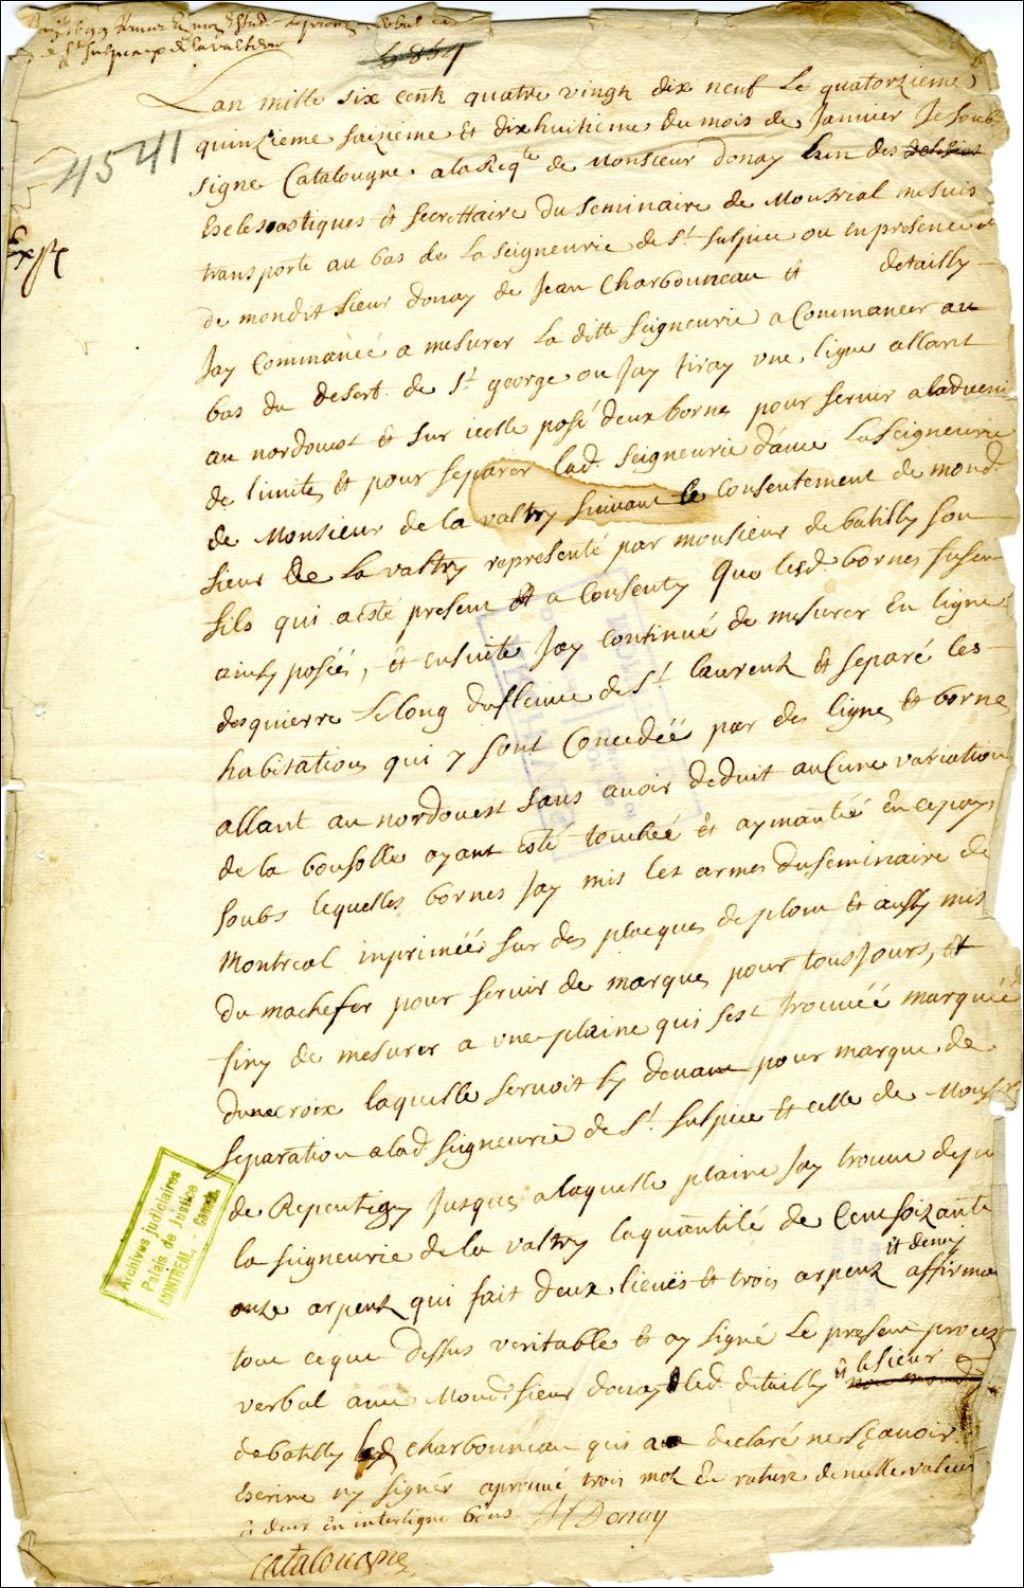 de St Sulpice & de la valterie
4541
Lan mille six cents quatre vingts dix neuf le quatorzieme
quinzieme saizieme et dixhuitieme du mois de Janvier Je soub
signe Catalougne a la Reqte de Monsieur donay lun des
Eclesiastiques et secrettaire du seminaire de Montreal me suis
transporte au bas de la seigneurie de St sulpice ou en presence
de mondit sieur donay de Jean Charbonneau et detailly
Jay Commancé a mesurer la ditte seigneurie a Commancer au
bas du desert de St george ou Jay tiray vne ligne allant
au nordouest et sur icelle posé deux bornes pour servir a ladveni
de limites et pour separer lad. seigneurie dauec la seigneurie
de Monsieur de la valtry suivant le consentement de mond.
sieur De la valtry representé par monsieur de batilly son
fils qui a esté present et a consenty que lesd bornes fusen
ainsy posées, et ensuitte Jay continué de mesurer en ligne
desquierre le long du fleuue de St laurent et separé les
habitations qui y sont Concedéé par des lignes et bornes
allant au nordouest sans auoir deduit aucune variation
de la bousolle ayant esté touchéé et aymantéé en ce pays
soubs lequelles bornes Jay mis les armes du seminaire de
Montreal inpriméés sur des placques de plom et aussy mis
du machefer pour servir de marques pour tousjours, et
finy de mesurer a vne plaine qui sest trouuéé marquéé
dune croix laquelle servoit cy devant pour marque de
separation a lad seigneurie de St sulpice et celle de Monsr
de Repentigny Jusques a laquelle plaine Jay trouue depu
la seigneurie de la valtry la quantité de Cent soixante
et demy
onze arpents qui fait deux lieuës et trois arpents affirma
tout ce que dessus veritable et ay signé le present proces
et le sieur
verbal auec Mond. sieur donay led. detailly
de batilly led charbonneau qui a declaré ne sçauoir
Escrire ny signer aprouué trois mots en rature de nulle valeur
& deux en interligne bons H Donay
Catalougne
Archives judiciaires
Palais de Justice
MONTREAL, - Canada.